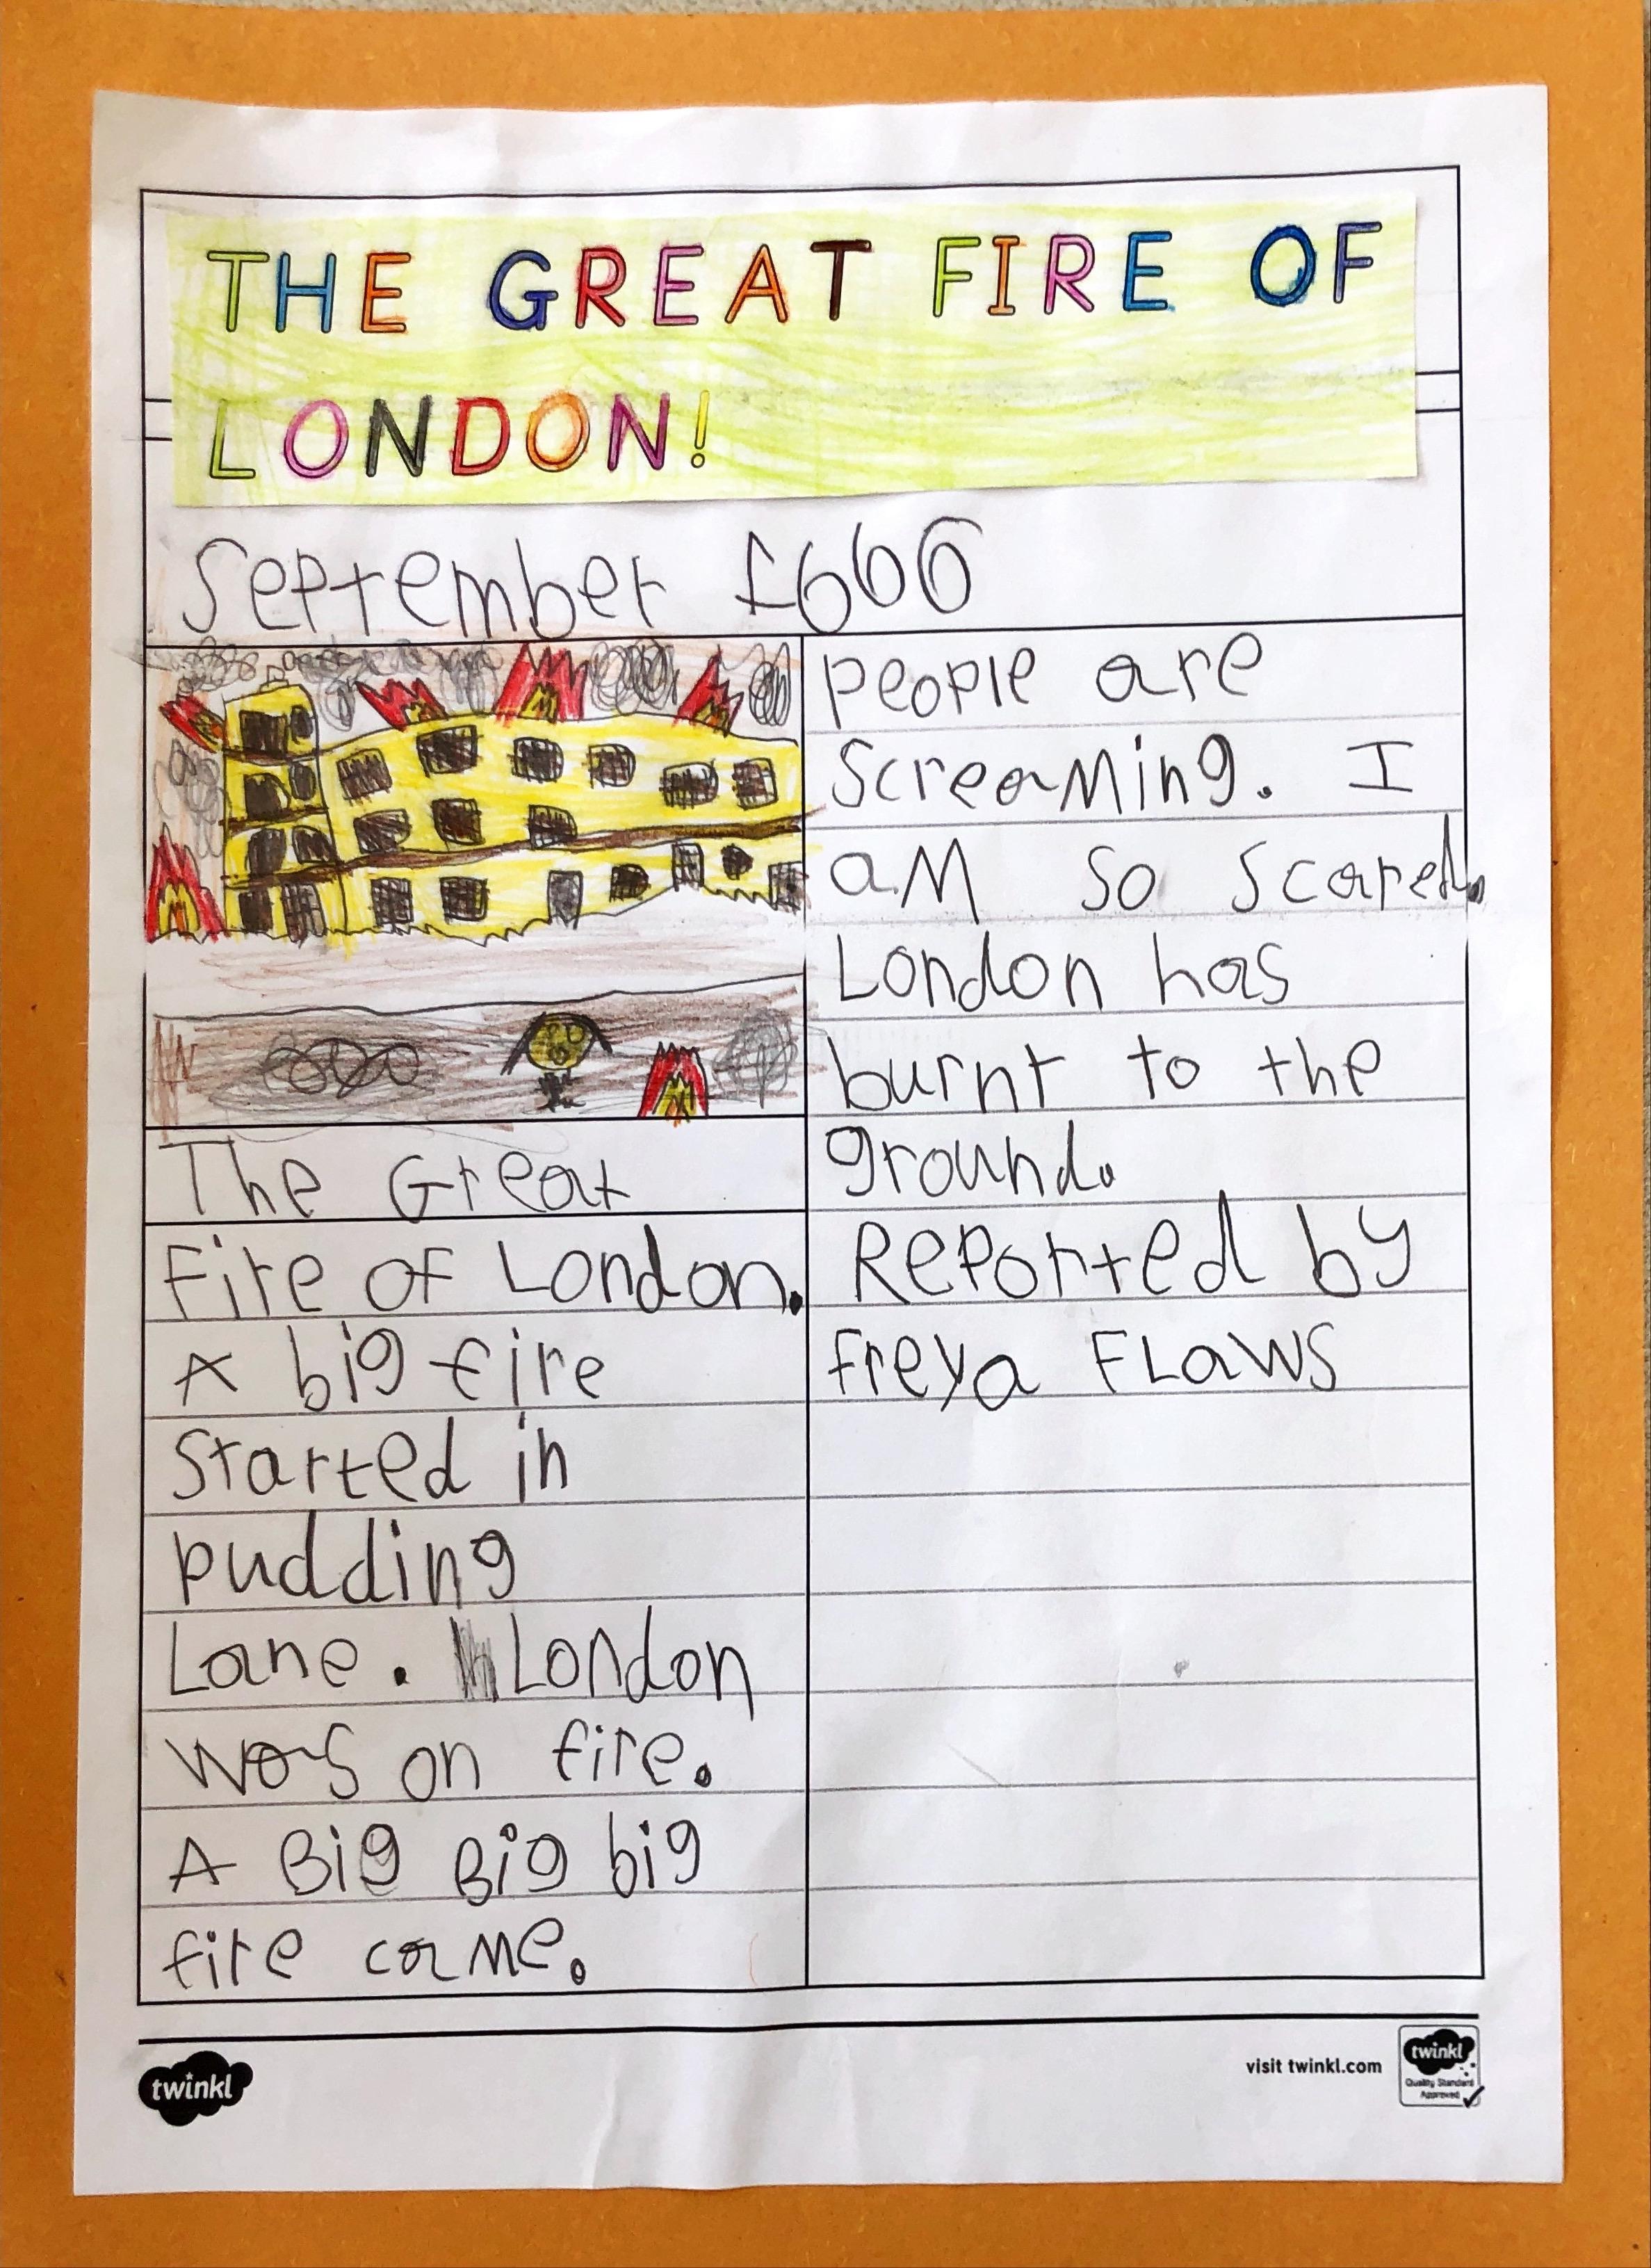 THE GREAT FIRE OF
LONDON!
September 1666
The Great
Fire of London.
A big fire
started in
pudding
Lane. London
was on fire.
A Big Big big
fire came.
people are
screaming. I
aM so scared.
London has
burnt to the
ground.
Reported by
freya FLaws
twinkl
visit twinkl.com
twinkl
Quality Standard
Approved